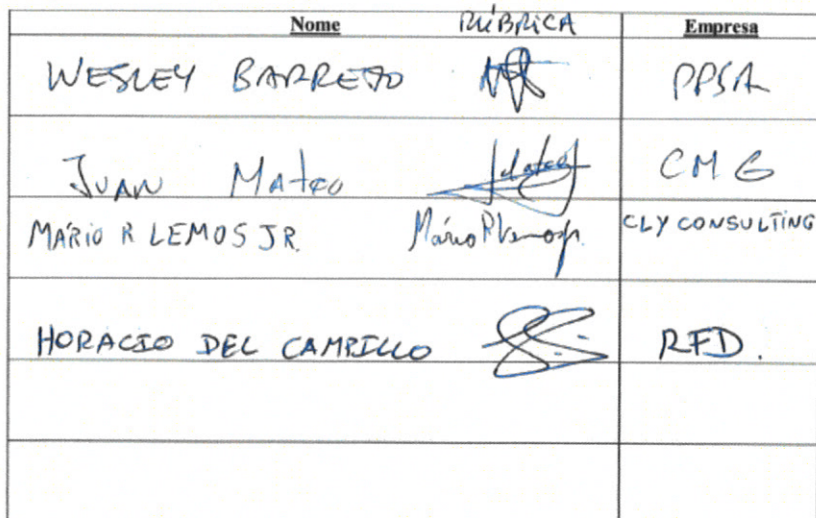 Nome RÚBRICA Empresa
WESLEY BARRETO PPSA
JUAN Mateo JMateo CMG
MÁRIO R LEMOS JR. Mário R Lemos Jr. CLY CONSULTING
HORACIO DEL CAMPILLO RFD.